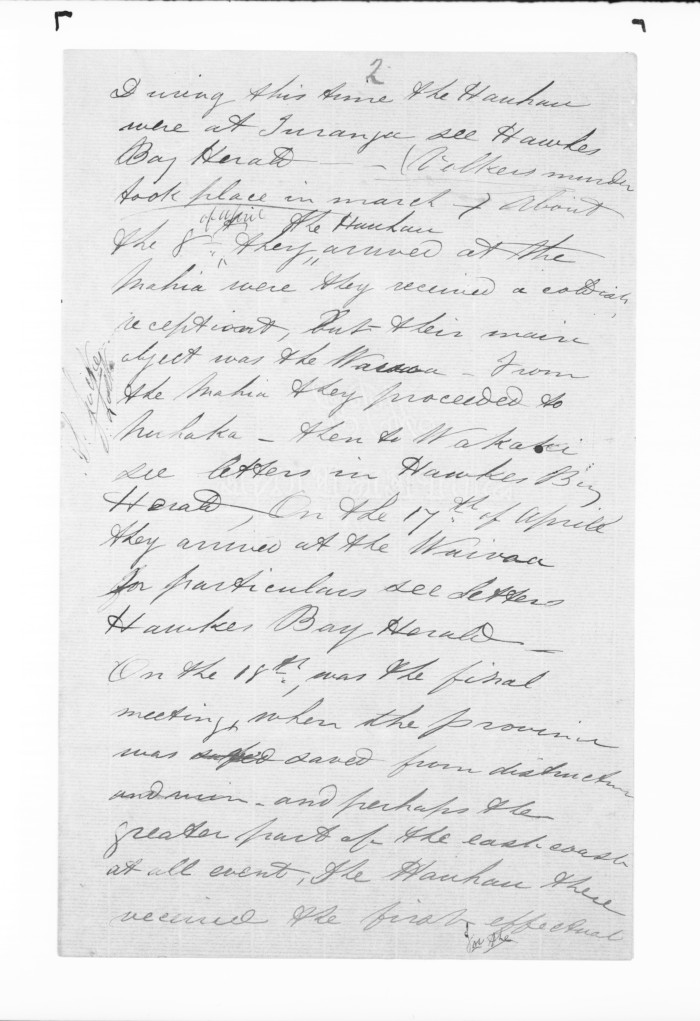 2
During this time the Hauhau
were at Turanga see Hawkes
Bay Herald — - (Volkers murder
took place in march) About
of April the Hauhau
the 8th they arrived at the
Mahia were they received a coldish
reception, but their main
object was the Wairoa - From
the Mahia they proceeded to
Nuhaka - then to Wakaki
see letters in Hawkes Bay
Herald, On the 17th of Aprill
they arrived at the Wairoa
for particulars see letters
Hawkes Bay Herald —
On the 18th, was the final
meeting, when the province
was saved from distruction
and ruin - and perhaps the
greater part of the east coast
at all event, the Hauhau there
received the first effectual
on the